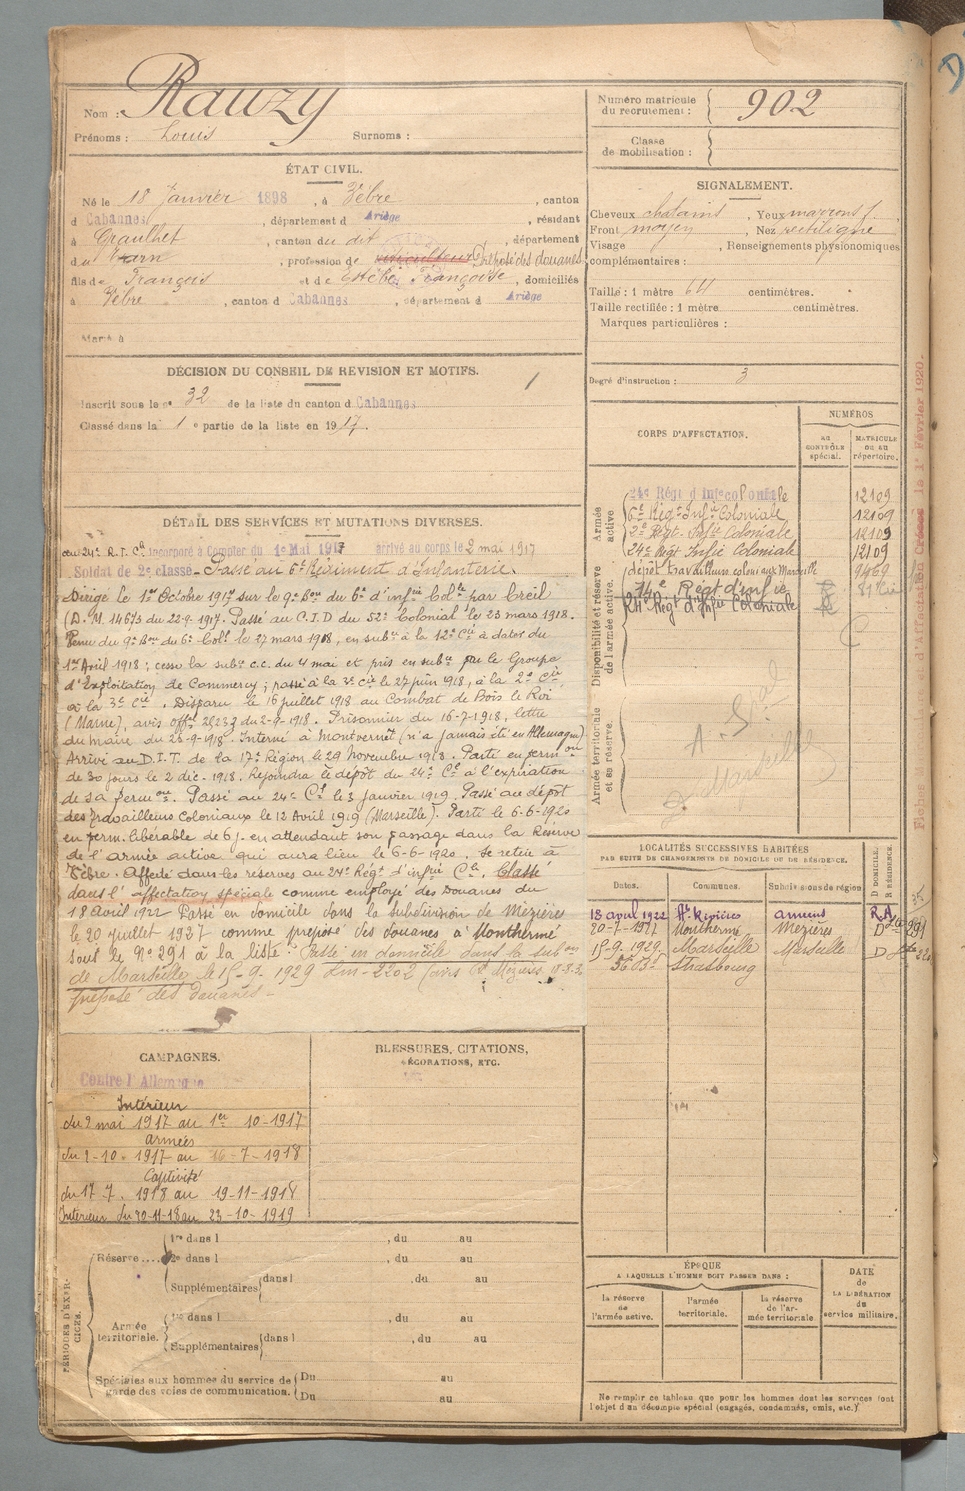 Nom : Rauzy
Prénoms : Louis Surnoms :
Numéro matricule du recrutement : 902
Classe de mobilisation :
ÉTAT CIVIL.
Né le 18 Janvier 1898, à Vèbre, canton
d Cabannes, département d Ariège, résidant
à Graulhet, canton du dit, département
du Tarn, profession de Préposé des douanes
fils de François et de Estèbe Françoise, domiciliés
à Vèbre, canton d Cabannes, département d Ariège
Marié à
DÉCISION DU CONSEIL DE REVISION ET MOTIFS.
1
Inscrit sous le n° 32 de la liste du canton d Cabannes
Classé dans la 1e partie de la liste en 1917.
SIGNALEMENT.
Cheveux chatains, Yeux marrons f.
Front moyen Nez rectiligne
Visage , Renseignements physionomiques
complémentaires :
Taille : 1 mètre 64 centimètres.
Taille rectifiée : 1 mètre centimètres.
Marques particulières :
Degré d'instruction : 3
DÉTAIL DES SERVICES ET MUTATIONS DIVERSES.
au 24e R. I. Cle Incorporé à Compter du 1er Mai 1917 arrivé au corps le 2 mai 1917
Soldat de 2e classe - Passé au 6e Régiment d'Infanterie.
Dirigé le 1er Octobre 1917 sur le 9e Bon du 6e d'infie Cole par Creil
(D.M. 14673 du 22-9-1917. Passé au C.I.D du 52e Colonial le 23 mars 1918.
Venu du 9e Bon du 6e Col. le 27 mars 1918, en subce à la 12e Cie à dater du
1er Avril 1918 ; cesse la subce c.c. du 4 mai et pris en subce par le Groupe
d'Exploitation de Commercy ; passé à la 3e Cie le 27 juin 1918, à la 2e Cie,
à la 3e Cie. Disparu le 16 juillet 1918 au Combat de Bois le Roi
(Marne), avis offel 28237 du 2-9-1918. Prisonnier du 16-7-1918, lettre
du maire du 28-9-1918. Interné à Montvernet (n'a jamais été en Allemagne)
Arrivé au D.I.T. de la 17e Région le 29 Novembre 1918. Parti en permon
de 30 jours le 2 déc. 1918. Rejoindra le dépôt du 24e Cl à l'expiration
de sa permon. Passé au 24e Cl le 3 Janvier 1919. Passé au dépôt
des Travailleurs Coloniaux le 12 Avril 1919 (Marseille). Parti le 6-6-1920
en perm. libérable de 6 j. en attendant son passage dans la Réserve
de l'armée active qui aura lieu le 6-6-1920. Se retire à
Vèbre. Affecté dans les réserves au 24e Régt d'infie Cle. Classé
dans l'affectation spéciale comme employé des Douanes du
18 Avril 1922 Passé en domicile dans la subdivision de Mézières
le 20 Juillet 1927 comme préposé des douanes à Monthermé
sous le N° 291 à la liste. Passé en domicile dans la subon
de Marseille le 15-9-1929
préposé des douanes -
CORPS D'AFFECTATION.
NUMÉROS
AU CONTRÔLE spécial.
MATRICULE OU AU répertoire.
Armée active
24e Régt d'Infie coloniale 12109
6e Régt Infie Coloniale 12109
2e Régt Infie Coloniale 12109
24e Régt Infie Coloniale 12109
Disponibilité et réserve de l'armée active.
dépôt travailleurs coloniaux Marseille 9469
Régt d'infie
24e Régt d'Infie Coloniale
Armée territoriale et sa réserve.
Marseille
LOCALITÉS SUCCESSIVES HABITÉES
PAR SUITE DE CHANGEMENTS DE DOMICILE OU DE RÉSIDENCE.
Dates. Communes. Subdivisions de région D DOMICILE. R RÉSIDENCE.
18 avril 1922 Amiens R.A
20-7-1927 Monthermé Mézières D
15-9-1929 Marseille Marseille D
Strasbourg
CAMPAGNES.
Contre l'Allemagne
Intérieur
du 2 mai 1917 au 1er 10-1917
armées
du 2-10-1917 au 16-7-1918
Captivité
du 17 7. 1918 au 19-11-1918
Intérieur du 20-11-18 au 23-10-1919
BLESSURES, CITATIONS,
DÉCORATIONS, ETC.
PÉRIODES D'EXERCICES.
Réserve....
1re dans l , du au
2e dans l , du au
Supplémentaires dans l , du au
Armée territoriale.
1re dans l , du au
Supplémentaires dans l , du au
Spéciales aux hommes du service de
garde des voies de communication.
Du au
Du au
ÉPOQUE
A LAQUELLE L'HOMME DOIT PASSER DANS :
la réserve de l'armée active.
l'armée territoriale.
la réserve de l'armée territoriale
DATE de LA LIBÉRATION du service militaire.
Ne remplir ce tableau que pour les hommes dont les services font
l'objet d'un décompte spécial (engagés, condamnés, omis, etc.)
d'Affectation Créée le 1er Février 1920.